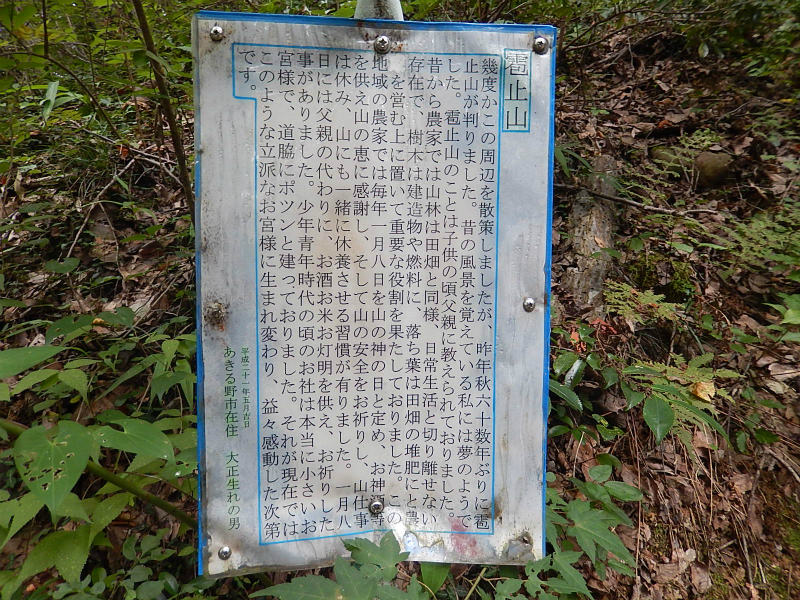 雹止山
幾度かこの周辺を散策しましたが、昨年秋六十数年ぶりに雹
止山が判りました。昔の風景を覚えている私には夢のようで
した。雹止山のことは子供の頃父親に教えられておりました。
昔から農家では山林は田畑と同様、日常生活と切り離せない
存在で、樹木は建造物や燃料に、落ち葉は田畑の堆肥にと農
を営む上に置いて重要な役割を果たしておりました。この
地域の農家では毎年一月八日を山の神の日と定め、お神酒等
を供え山の恵に感謝し、そして山の安全をお祈りし、山仕事
は休み、山にも一緒に休養させる習慣が有りました。一月八
日には父親の代わりに、お酒お米お灯明を供え、お祈りした
事がありました。少年青年時代の頃のお社は本当に小さいお
宮様で、道脇にポツンと建っておりました。それが現在では
このような立派なお宮様に生まれ変わり、益々感動した次第
です。
平成二十一年五月吉日
あきる野市在住 大正生れの男